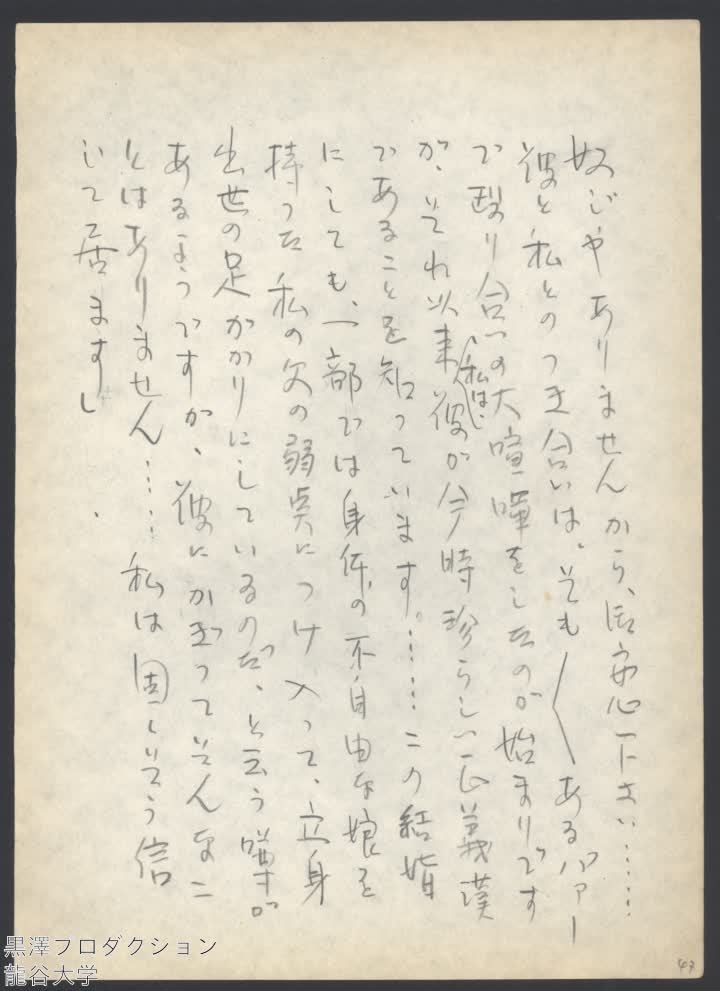 奴じやありませんから、御安心下さい……
彼と私とのつき合いは、そも〱あるバァー
で殴り合いの大喧嘩をしたのが始まりです
が、それ以来〈私は、〉彼が今時珍らしい正義漢
であることを知っています。……この結婚
にしても、一部では身体の不自由な娘を
持つた私の父の弱点につけ入って、立身
出世の足がかりにしているのだ、と云う噂が
あるようですが、彼にかぎってそんなこ
とはありません……私は固くそう信
じて居ますし
47
黒澤プロダクション
龍谷大学